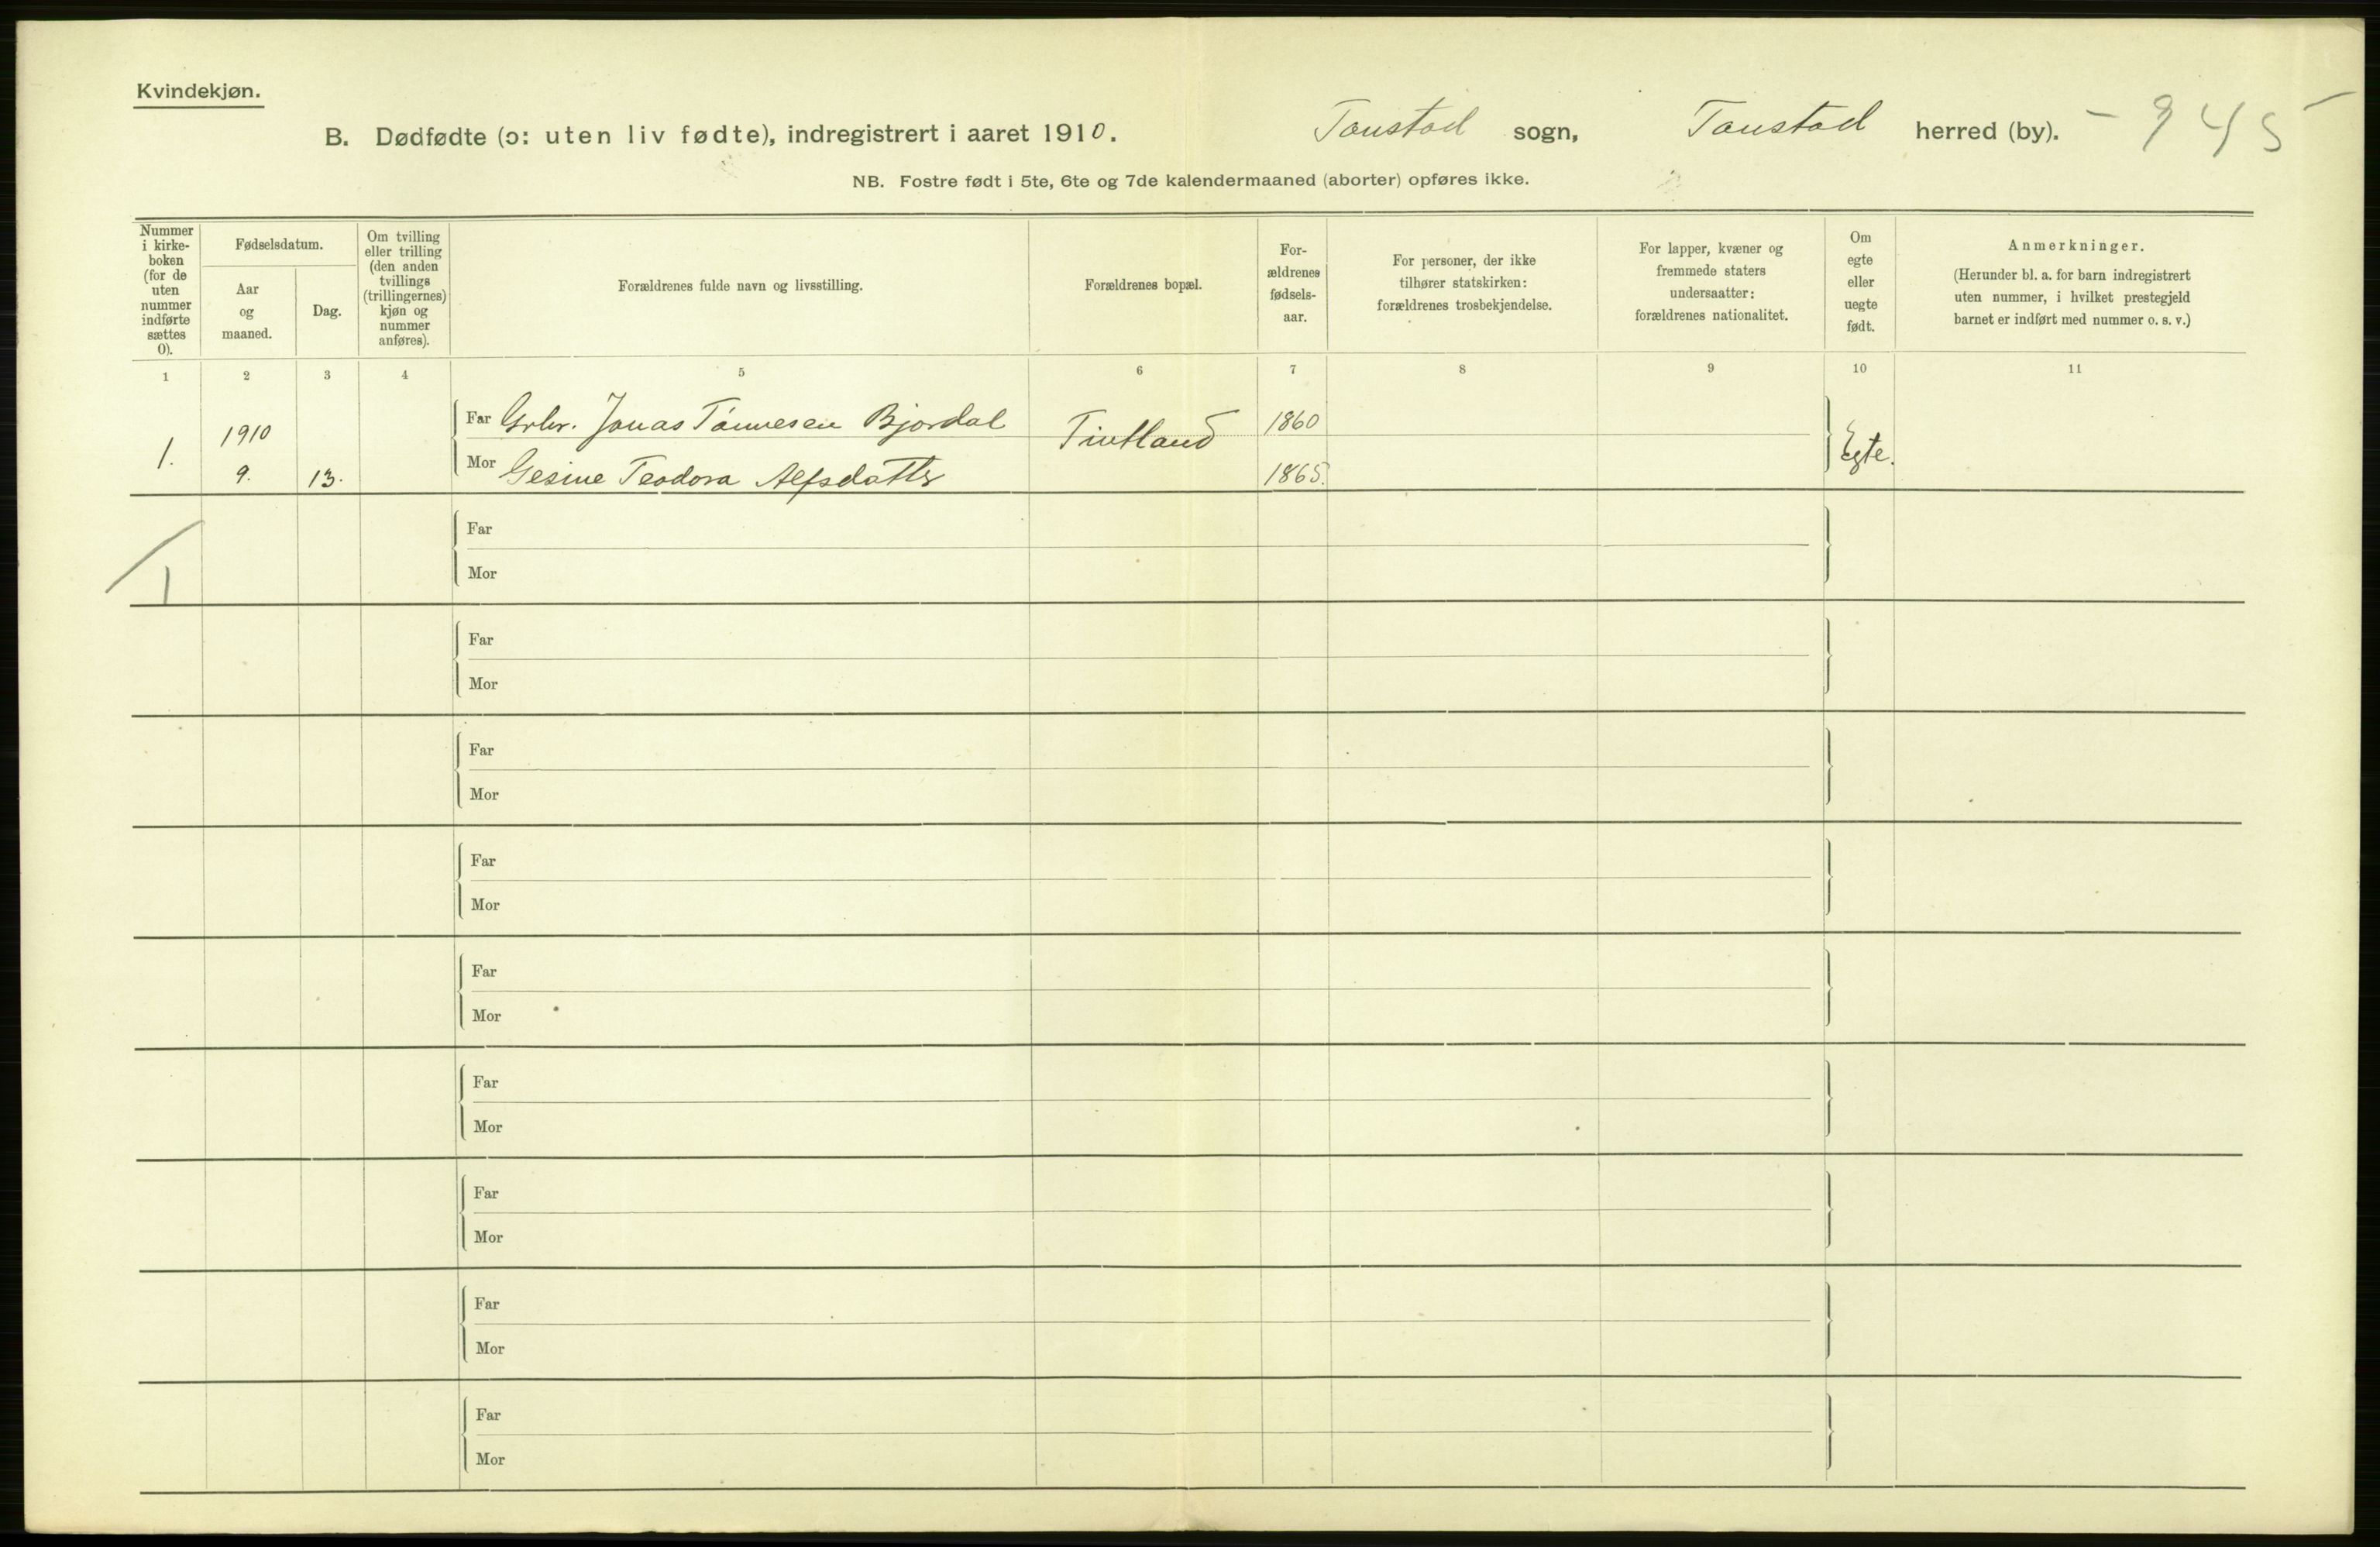 Kvindekjøn.
B. Dødfødte (ɔ: uten liv fødte), indregistrert i aaret 1910. Tonstad sogn, Tonstad herred (by). - 945 -
NB. Fostre født i 5te, 6te og 7de kalendermaaned (aborter) opføres ikke.
Nummer
i kirke-
boken
(for de
uten
nummer
indførte
sættes
0).
Fødselsdatum.
Aar
og
maaned.
Dag.
Om tvilling
eller trilling
(den anden
tvillings
(trillingernes)
kjøn og
nummer
anføres).
Forældrenes fulde navn og livsstilling.
Forældrenes bopæl.
For-
ældrenes
fødsels-
aar.
For personer, der ikke
tilhører statskirken:
forældrenes trosbekjendelse.
For lapper, kvæner og
fremmede staters
undersaatter:
forældrenes nationalitet.
Om
egte
eller
uegte
født.
Anmerkninger.
(Herunder bl. a. for barn indregistrert
uten nummer, i hvilket prestegjeld
barnet er indført med nummer o. s. v.)
1 2 3 4 5 6 7 8 9 10 11
1. 1910 Far Grbr. Jonas Tönnesen Bjordal Tintland 1860 Egte.
9. 13. Mor Gesine Teodora Alfsdatter 1865.
Far
1 Mor
Far
Mor
Far
Mor
Far
Mor
Far
Mor
Far
Mor
Far
Mor
Far
Mor
Far
Mor